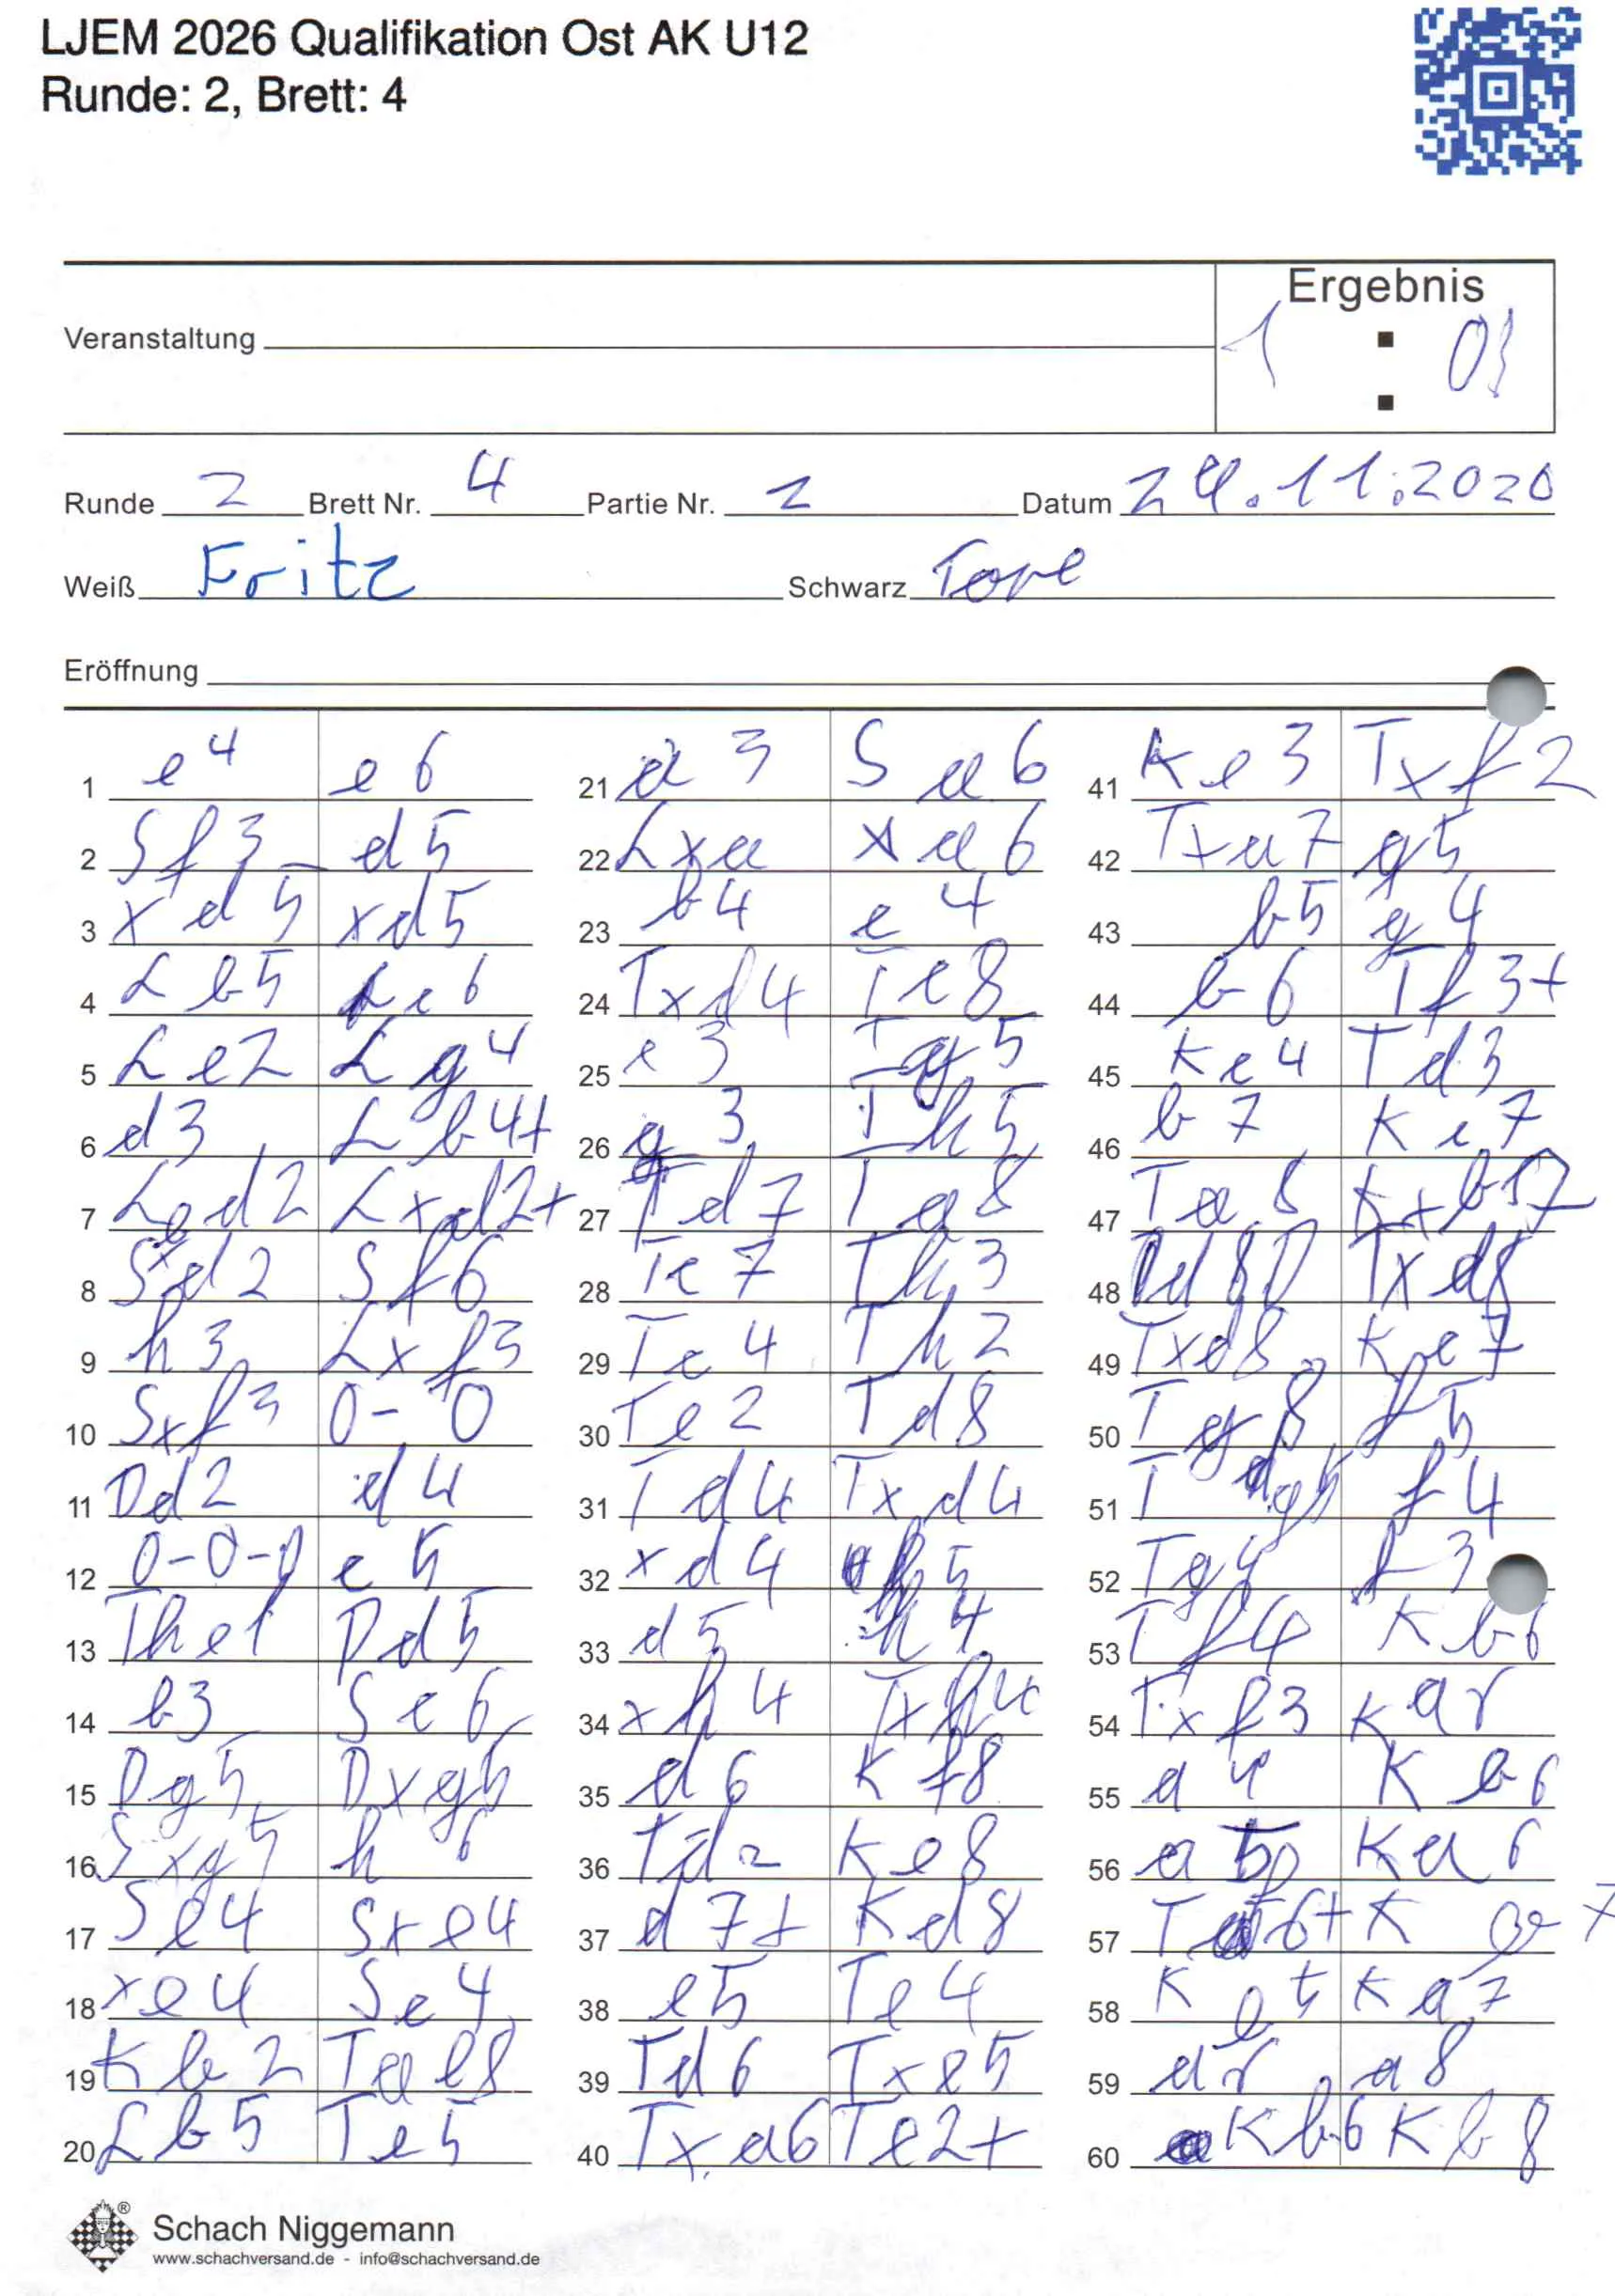 LJEM 2026 Qualifikation Ost AK U12
Runde: 2, Brett: 4
Ergebnis
Veranstaltung
1 : 0
Runde 2 Brett Nr. 4 Partie Nr. 2 Datum 24.11.2020
Weiß Fritz Schwarz Tore
Eröffnung
1 e4 e6
2 Sf3 d5
3 xd5 xd5
4 Lb5 c6
5 Le2 Lg4
6 d3 Lb4+
7 Ld2 Lxd2+
8 Sxd2 Sf6
9 h3 Lxf3
10 Sxf3 0-0
11 Dd2 d4
12 0-0-0 c5
13 The1 Dd5
14 b3 Sc6
15 Dg5 Dxg5
16 Sxg5 h6
17 Se4 Sxe4
18 xe4 Se4
19 Kb2 Tae8
20 Lb5 Te5
21 a3 Sa6
22 Lxa xa6
23 b4 c4
24 Txd4 Tc8
25 c3 Tg5
26 g3 Th5
27 Td7 Ta8
28 Tc7 Th3
29 Tc4 Th2
30 Tc2 Td8
31 Td4 Txd4
32 xd4 h5
33 d5 h4
34 xh4 Txh4
35 d6 Kf8
36 Td2 Ke8
37 d7+ Kd8
38 e5 Te4
39 Td6 Txe5
40 Txa6 Te2+
41 Ke3 Txf2
42 Txa7 g5
43 b5 g4
44 b6 Tf3+
45 Kc4 Td3
46 b7 Kc7
47 Ta8 Kxb7
48 d8D Txd8
49 Txd8 Kc7
50 Tg8 f5
51 Tg5 f4
52 Tg4 f3
53 Tf4 Kb6
54 Txf3 Ka5
55 a4 Kb6
56 a5 Ka6
57 T6+ K 7
58 K Ka7
59 a8
60 Kb6 Kb8
Schach Niggemann
www.schachversand.de - info@schachversand.de